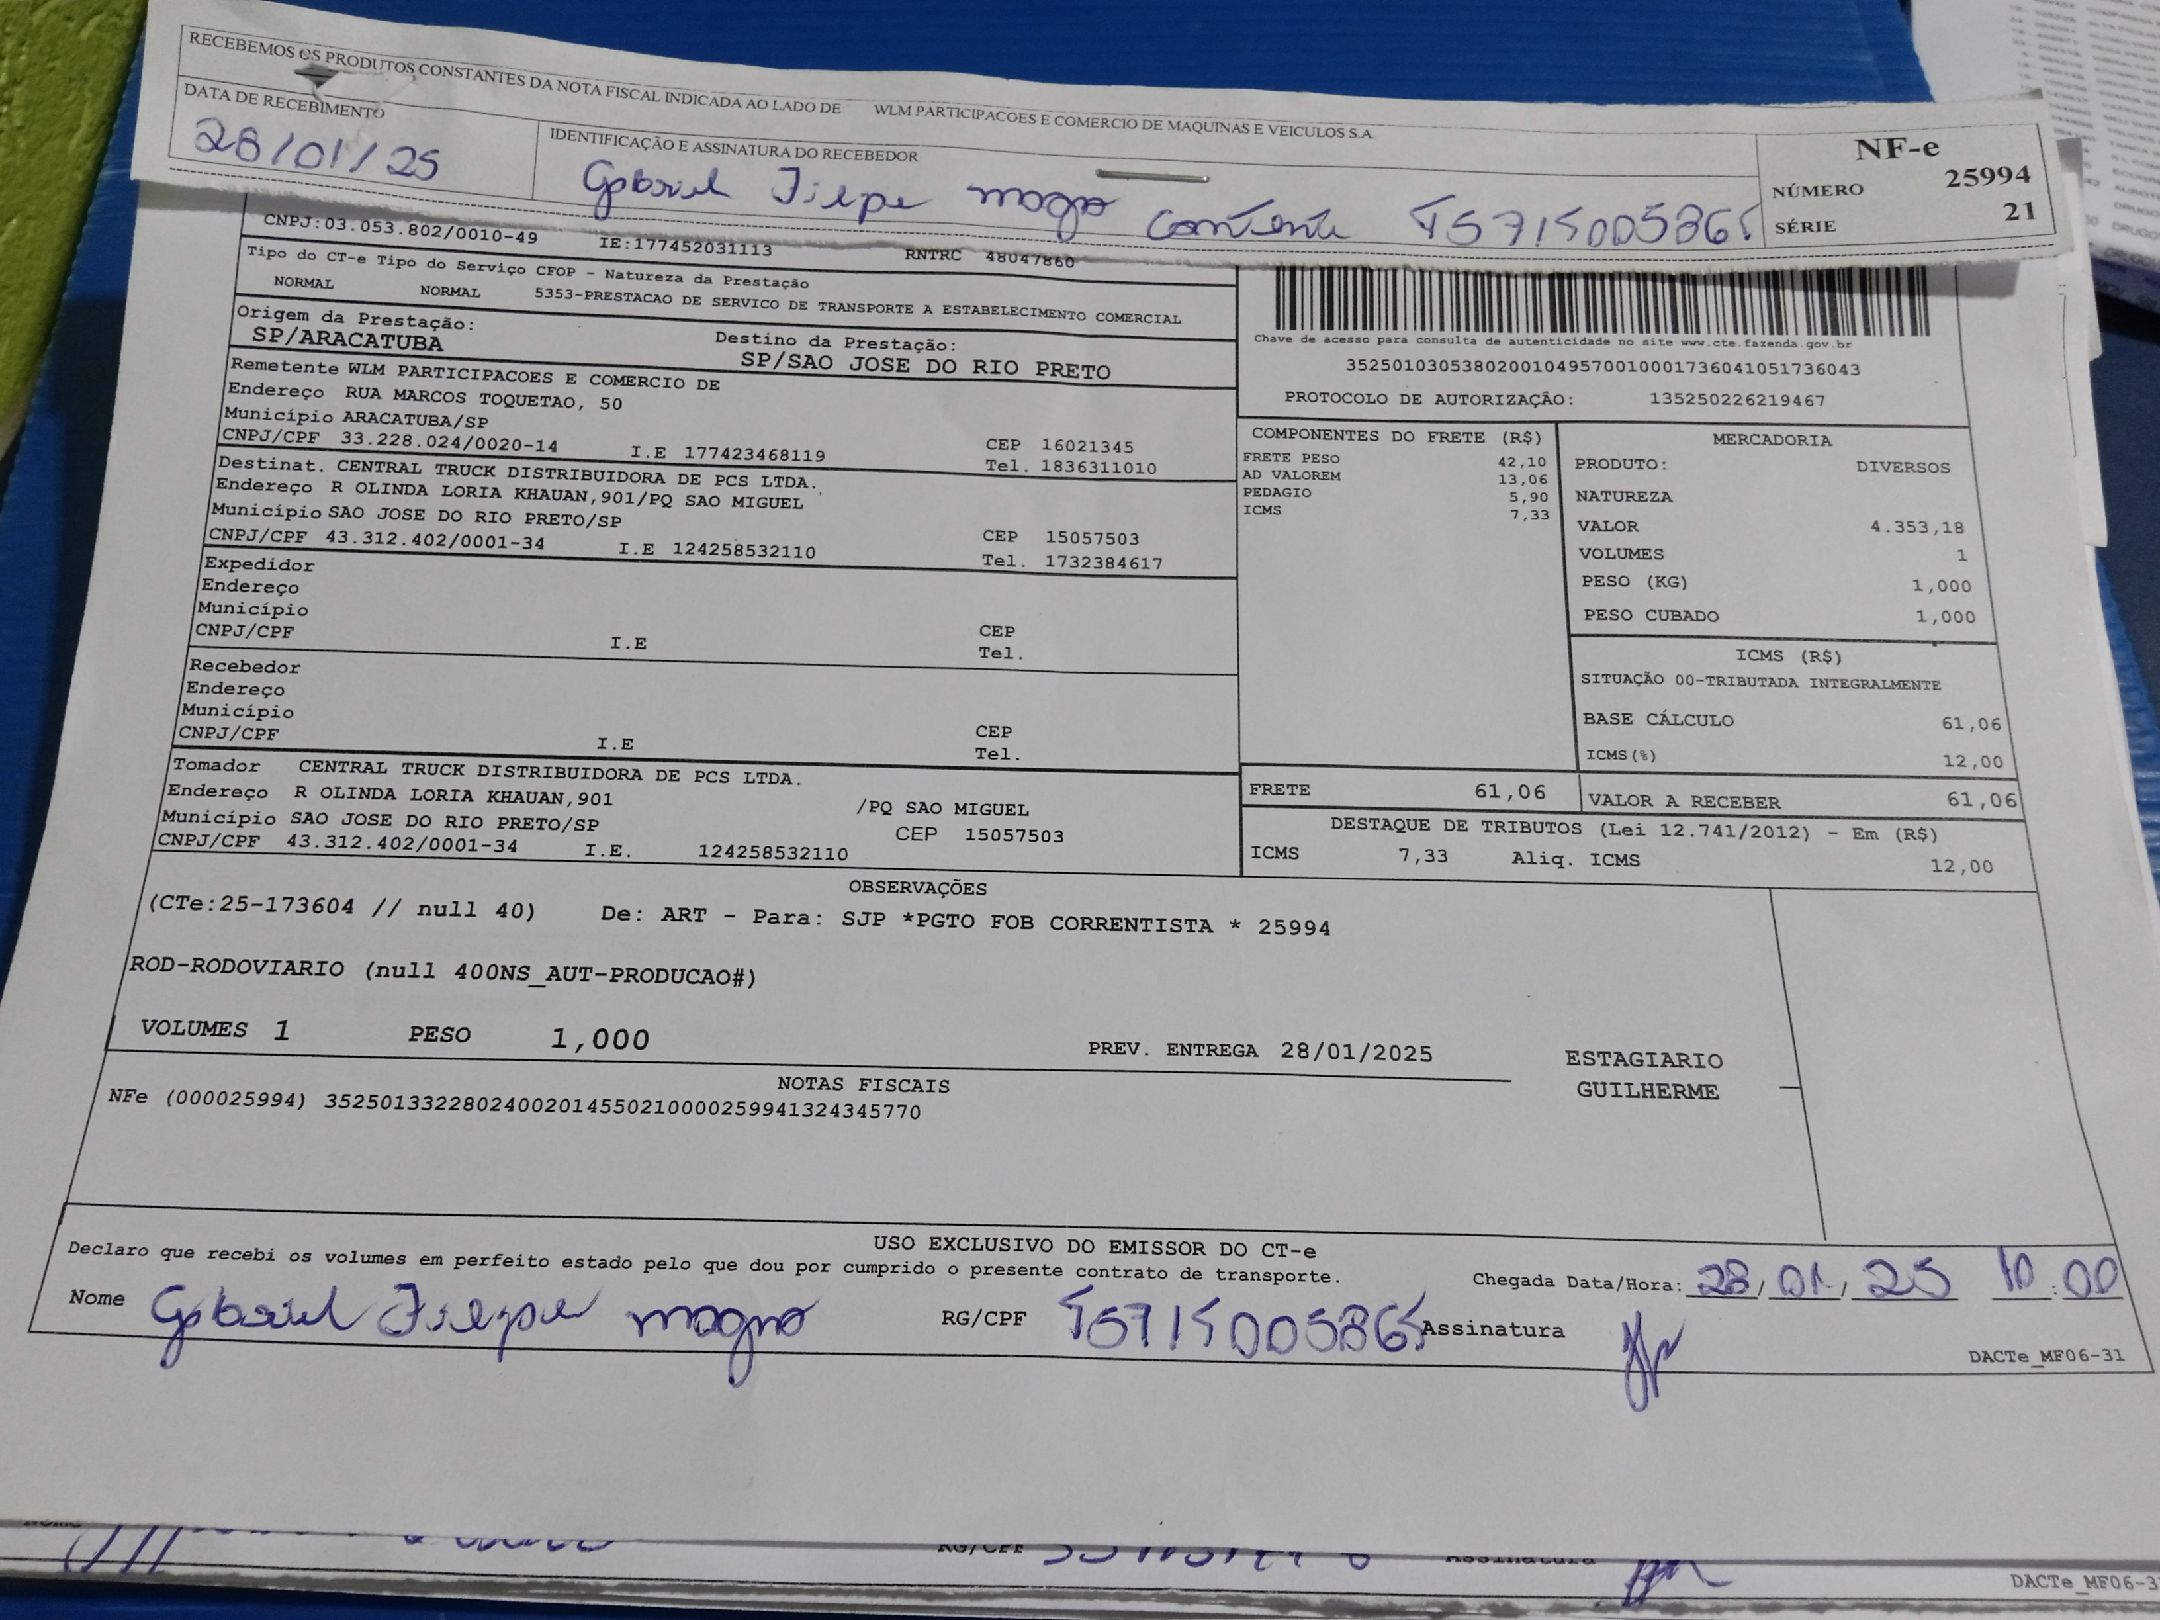 RECEBEMOS OS PRODUTOS CONSTANTES DA NOTA FISCAL INDICADA AO LADO DE WLM PARTICIPACOES E COMERCIO DE MAQUINAS E VEICULOS S.A.
DATA DE RECEBIMENTO
28/01/25
IDENTIFICAÇÃO E ASSINATURA DO RECEBEDOR
Gabriel Filepe magno
NF-e
NÚMERO 25994
SÉRIE 21
CNPJ:03.053.802/0010-49 IE:177452031113 RNTRC 48047860
Tipo do CT-e Tipo do Serviço CFOP - Natureza da Prestação
NORMAL NORMAL 5353-PRESTACAO DE SERVICO DE TRANSPORTE A ESTABELECIMENTO COMERCIAL
Origem da Prestação: Destino da Prestação:
SP/ARACATUBA SP/SAO JOSE DO RIO PRETO
Remetente WLM PARTICIPACOES E COMERCIO DE
Endereço RUA MARCOS TOQUETAO, 50
Município ARACATUBA/SP CEP 16021345
CNPJ/CPF 33.228.024/0020-14 I.E 177423468119 Tel. 1836311010
Destinat. CENTRAL TRUCK DISTRIBUIDORA DE PCS LTDA.
Endereço R OLINDA LORIA KHAUAN,901/PQ SAO MIGUEL
Município SAO JOSE DO RIO PRETO/SP CEP 15057503
CNPJ/CPF 43.312.402/0001-34 I.E 124258532110 Tel. 1732384617
Expedidor
Endereço
Município CEP
CNPJ/CPF I.E Tel.
Recebedor
Endereço
Município CEP
CNPJ/CPF I.E Tel.
Tomador CENTRAL TRUCK DISTRIBUIDORA DE PCS LTDA.
Endereço R OLINDA LORIA KHAUAN,901 /PQ SAO MIGUEL
Município SAO JOSE DO RIO PRETO/SP CEP 15057503
CNPJ/CPF 43.312.402/0001-34 I.E. 124258532110
Chave de acesso para consulta de autenticidade no site www.cte.fazenda.gov.br
35250103053802001049570010001736041051736043
PROTOCOLO DE AUTORIZAÇÃO: 135250226219467
COMPONENTES DO FRETE (R$)
FRETE PESO 42,10
AD VALOREM 13,06
PEDAGIO 5,90
ICMS 7,33
MERCADORIA
PRODUTO: DIVERSOS
NATUREZA
VALOR 4.353,18
VOLUMES 1
PESO (KG) 1,000
PESO CUBADO 1,000
ICMS (R$)
SITUAÇÃO 00-TRIBUTADA INTEGRALMENTE
BASE CÁLCULO 61,06
ICMS(%) 12,00
FRETE 61,06 VALOR A RECEBER 61,06
DESTAQUE DE TRIBUTOS (Lei 12.741/2012) - Em (R$)
ICMS 7,33 Aliq. ICMS 12,00
OBSERVAÇÕES
(CTe:25-173604 // null 40) De: ART - Para: SJP *PGTO FOB CORRENTISTA * 25994
ROD-RODOVIARIO (null 400NS_AUT-PRODUCAO#)
VOLUMES 1 PESO 1,000 PREV. ENTREGA 28/01/2025
ESTAGIARIO
GUILHERME
NOTAS FISCAIS
NFe (000025994) 35250133228024002014550210000259941324345770
USO EXCLUSIVO DO EMISSOR DO CT-e
Declaro que recebi os volumes em perfeito estado pelo que dou por cumprido o presente contrato de transporte.
Chegada Data/Hora: 28/01/25 10:00
Nome Gabriel Filepe magno RG/CPF Assinatura
DACTe_MF06-31
RG/CPF Assinatura
DACTe_MF06-3